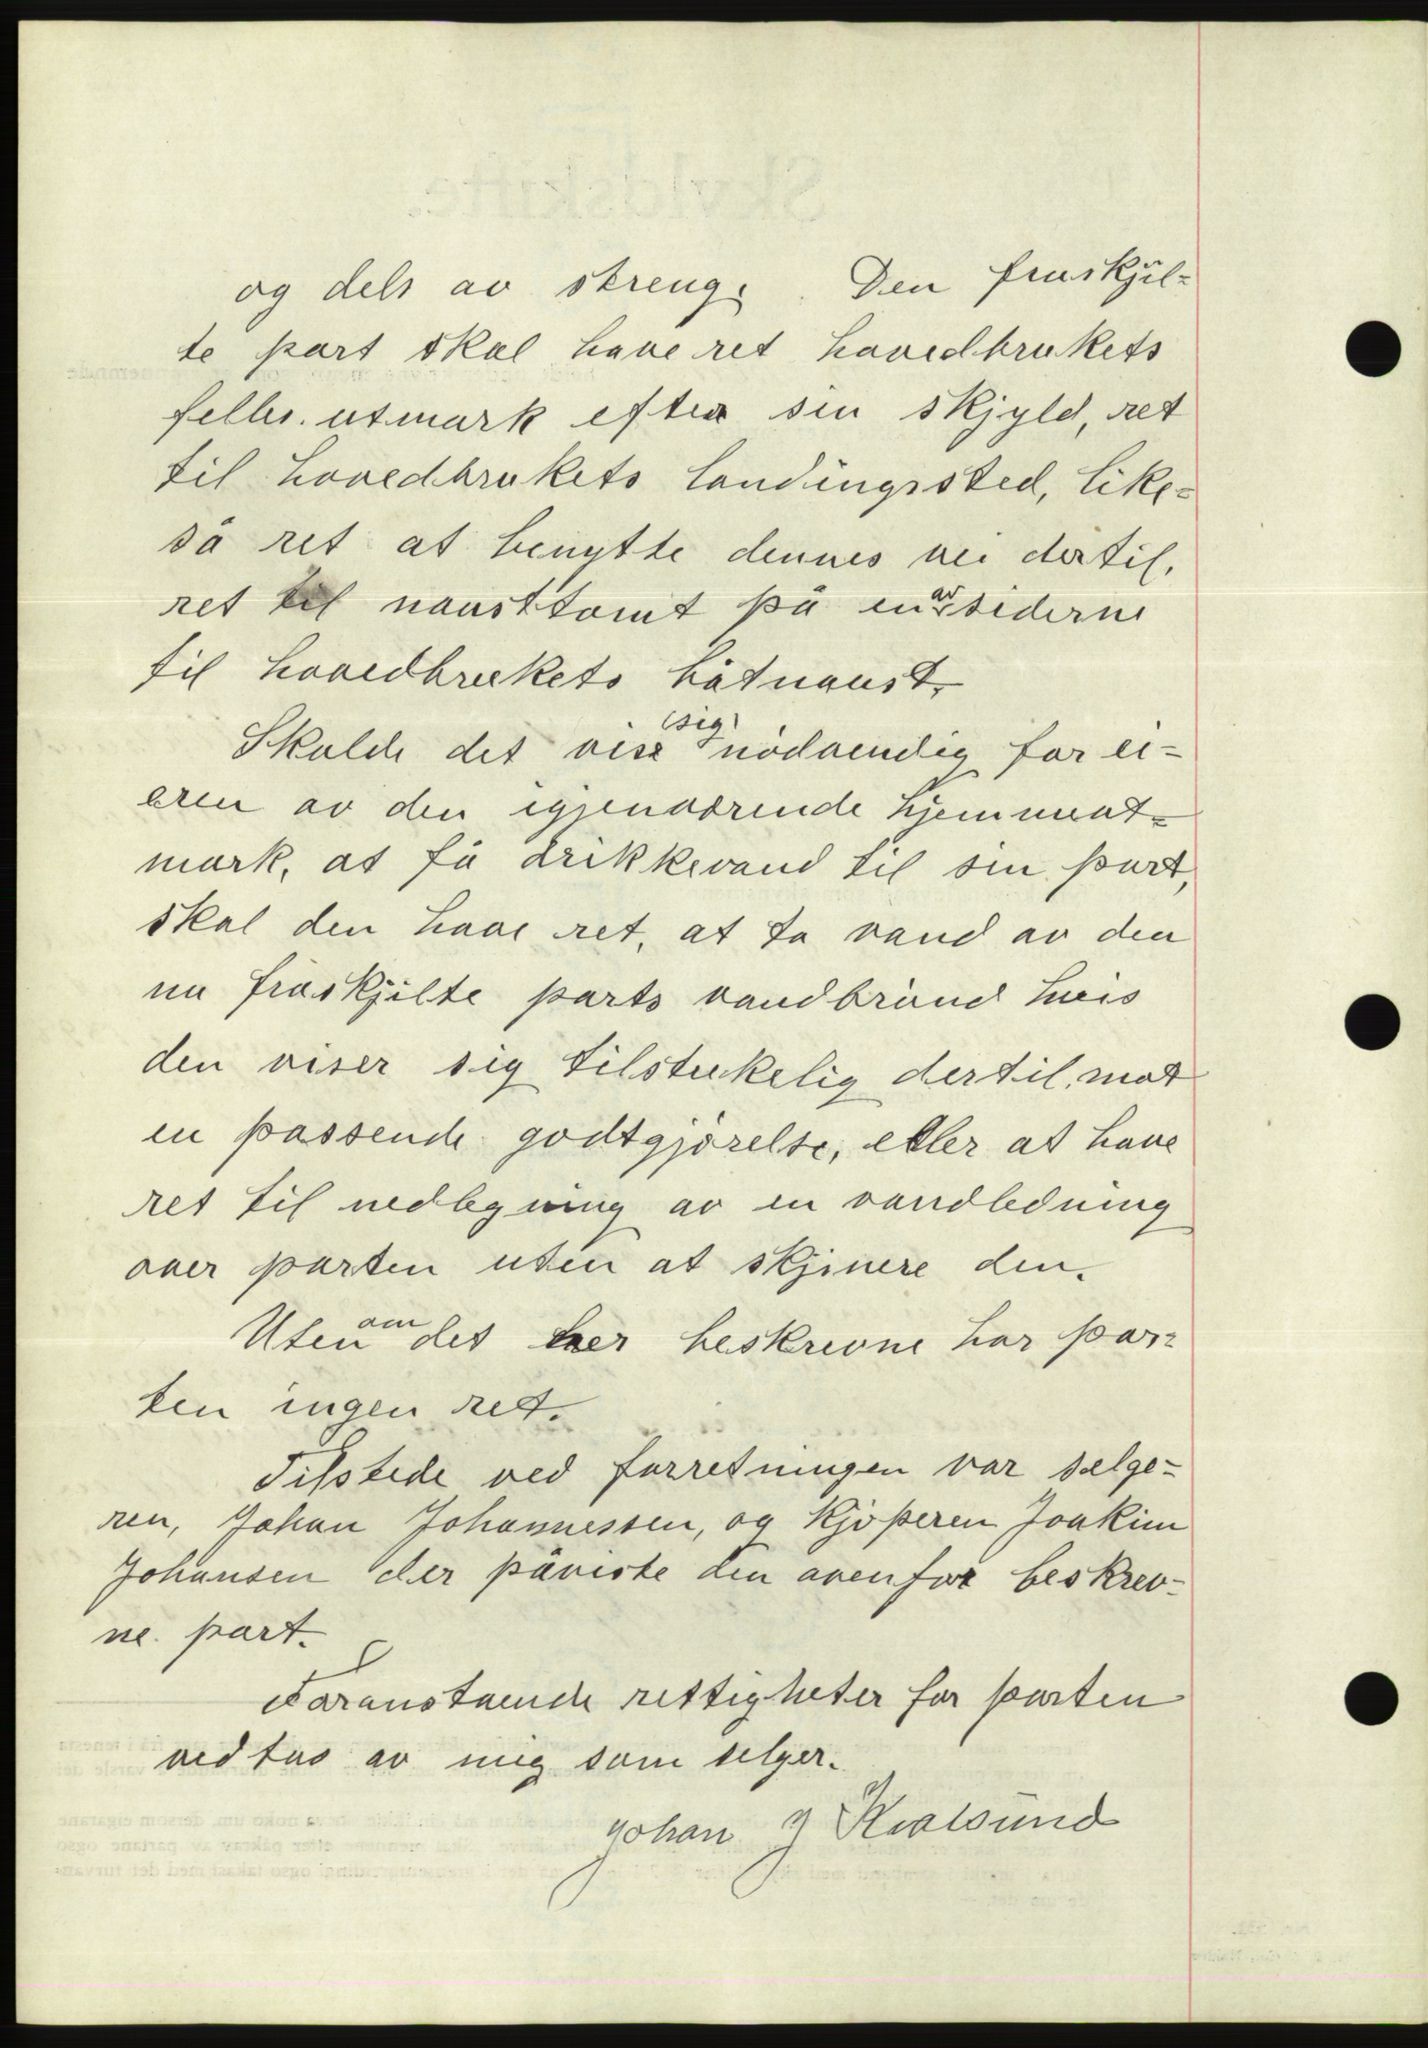 og dels av streng. Den fraskjil-
te part skal have ret hovedbrukets
felles. utmark efter sin skjyld, ret
til hovedbrukets landingssted, like-
så ret at benytte dennes vei dertil.
ret til nausttomt på en av siderne
til hovedbrukets båtnaust.
Skulde det vise (sig) nödvendig for ei-
eren av den igjenværende hjemmeut-
mark, at få drikkevand til sin part,
skal den have ret, at ta vand av den
nu fraskjilte parts vandbrönd hvis
den viser sig tilstrekelig dertil. mot
en passende godtgjörelse, eller at have
ret til nedlegning av en vandledning
over parten uten at skjinere den.
Uten om det her beskrevne har par-
ten ingen ret.
Tilstede ved forretningen var selge-
ren, Johan Johannessen, og kjöperen Joakim
Johansen der påviste den ovenfor beskrev-
ne. part.
Foranstaende rettigheter for parten
vedtas av mig som selger.
Johan J Kvalsund